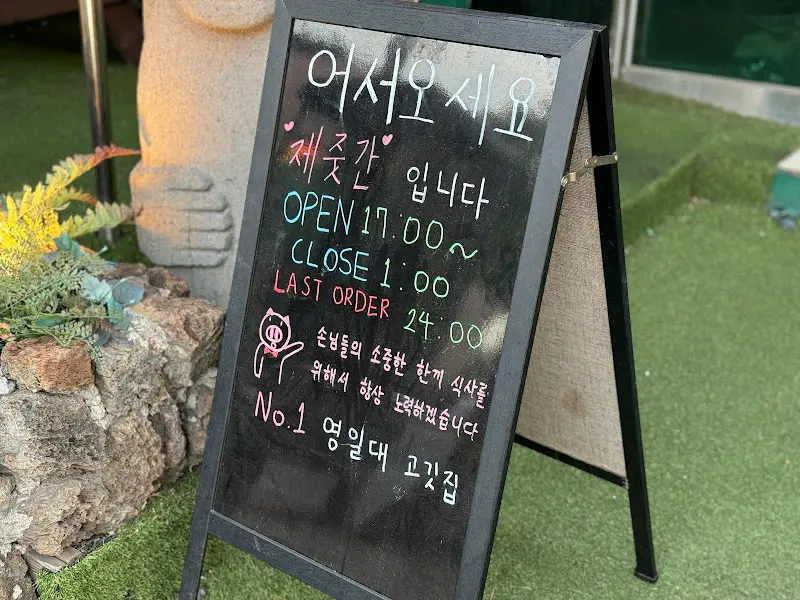 어서오세요
제줏간 입니다
OPEN 17:00~
CLOSE 1:00
LAST ORDER 24:00
손님들의 소중한 한끼 식사를
위해서 항상 노력하겠습니다
No.1 영일대 고깃집